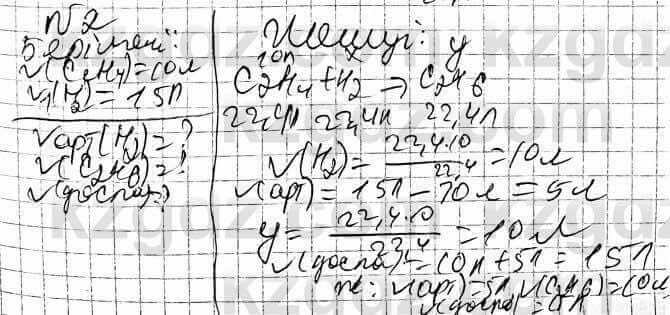 №2
Берілгені:
V(C2H4)=10л
V1(H2)=15л
Vарт(H2)=?
V(C2H6)=?
V(қоспа)?
Шешуі:
10л x y
C2H4+H2→C2H6
22,4л 22,4л 22,4л
V(H2)=22,4·10/22,4=10л
V(арт)=15л-10л=5л
y=22,4·10/22,4=10л
V(қоспа)=10л+5л=15л
ж: V(арт)=5л, V(C2H6)=10л
V(қоспа)=